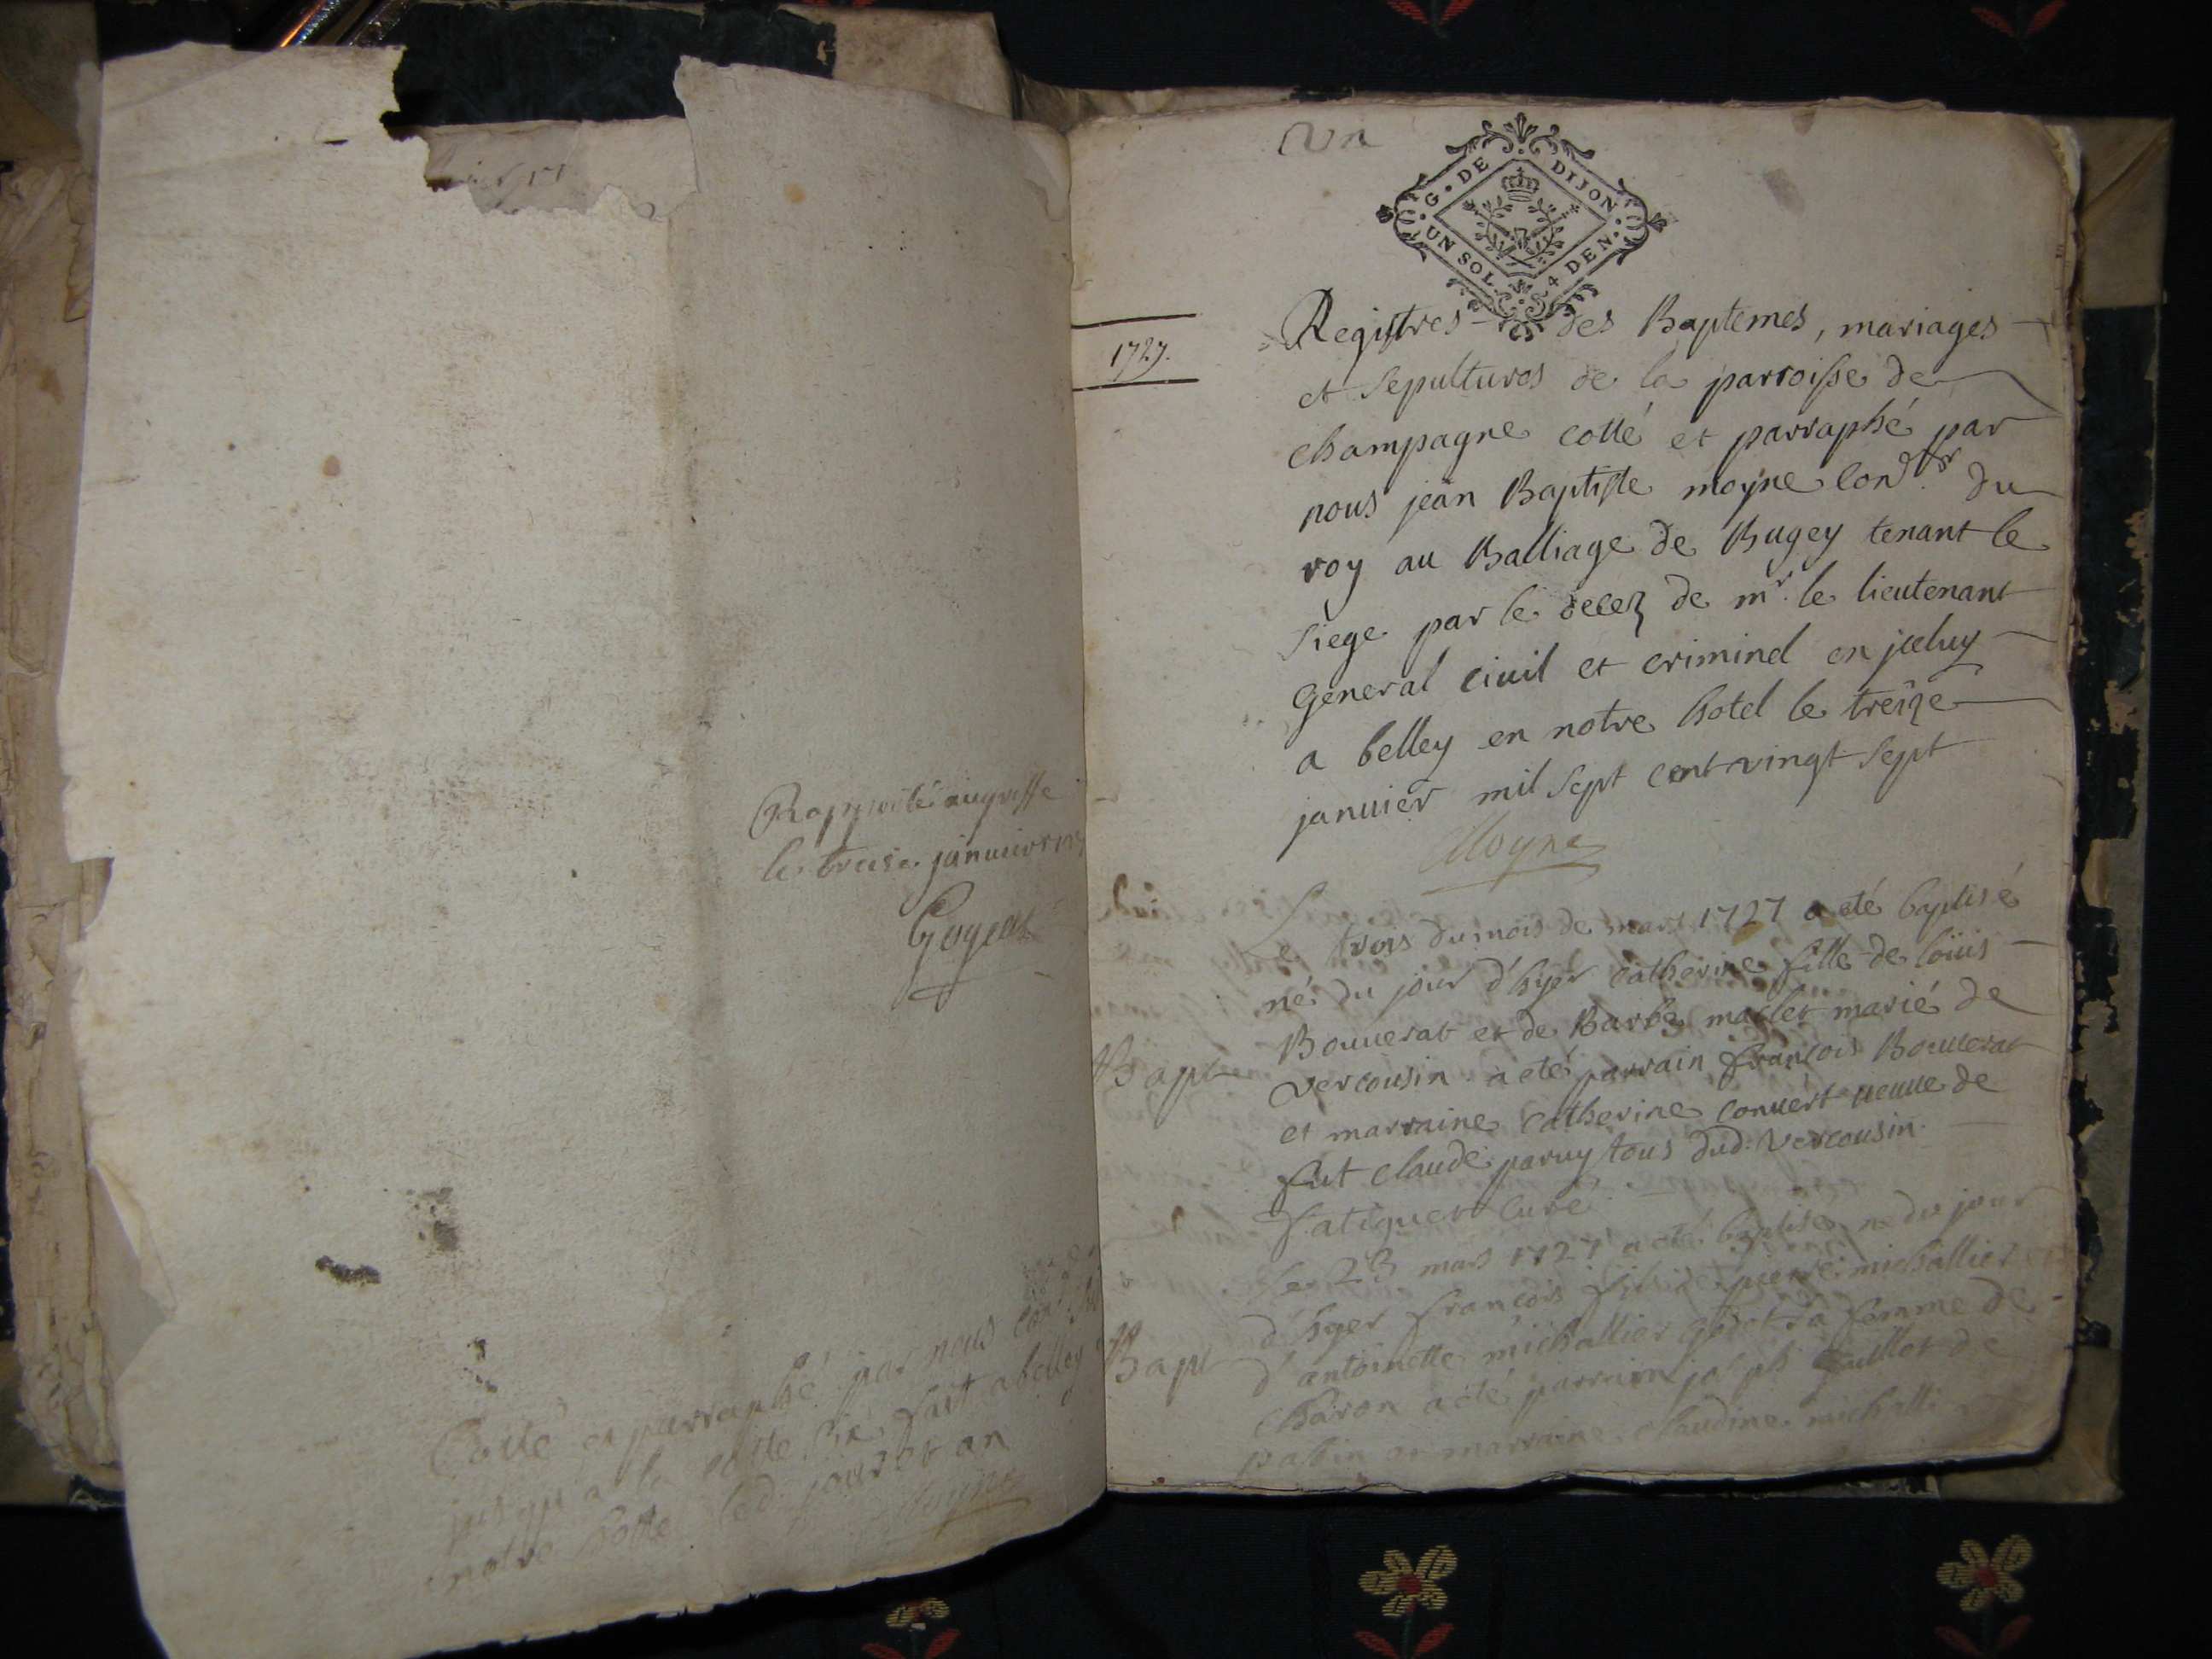 Rapporté au greffe
le treise januier
Goyet
Cotté et parraphé par nous
jusqu a la cotte six fait a belley
notre hotte led. jour et an
Moyne
Un
G. DE DIJON
UN SOL 4 DEN.
1727.
Registres des Baptemes, mariages
et sepultures de la parroisse de
champagne cotté et parraphé par
nous jean Baptiste moyne Con.er du
roy au Balliage de Bugey tenant le
siege par le decez de mr. le lieutenant
General ciuil et criminel en jceluy
a belley en notre hotel le treize
januier mil sept cent vingt sept
Moyne
Le trois du mois de mars 1727 a eté baptisé
né du jour d'hyer catherine fille de loüis
Bapt
Bouuerat et de Barbe mallet marié de
vercousin a eté parrain françois Bouuerat
et marraine Catherine conuert ueuue de
fut claude paruy tous dud. Vercousin.
fatiguet Curé
Le 23 mars 1727 a eté baptisé né du jour
d'hyer françois fils de pierre michallier
Bapt
d'antoinette michallier godet sa femme de
charon a eté parrain joseph guillot de
et marraine Claudine